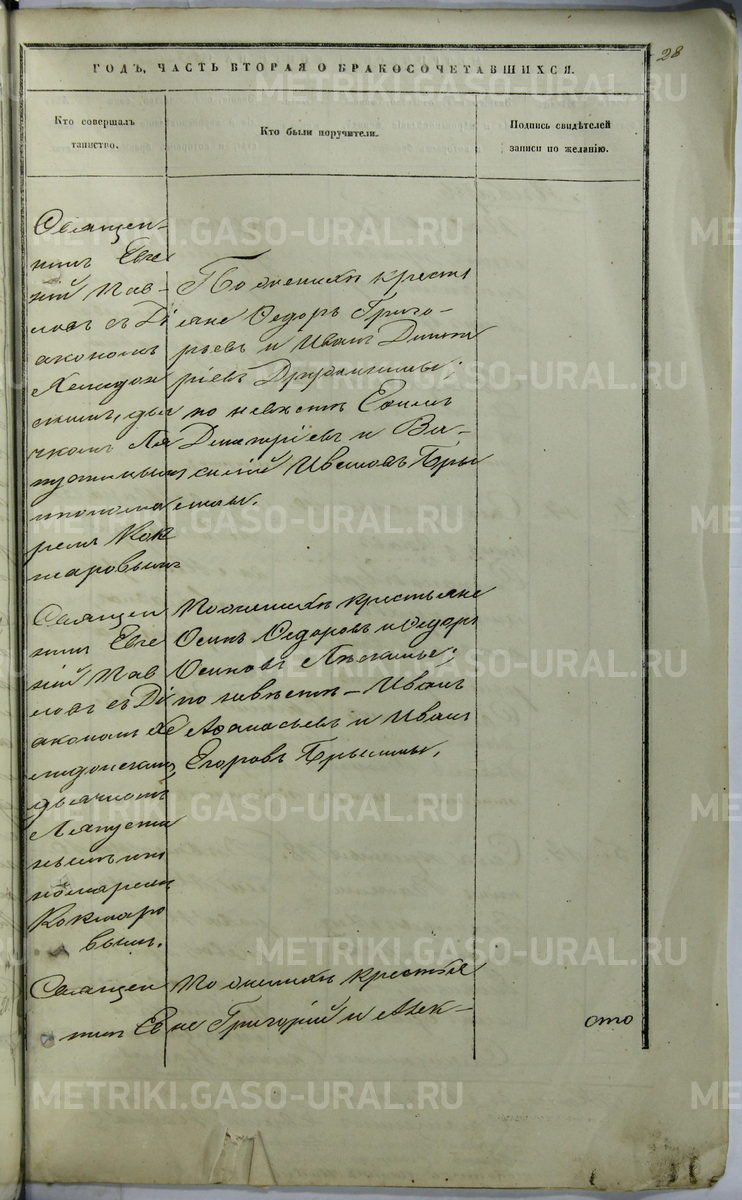 28
ГОДЪ, ЧАСТЬ ВТОРАЯ О БРАКОСОЧЕТАВШИХСЯ.
Кто совершалъ
таинство.
Кто были поручители.
Подпись свидѣтелей
записи по желанію.
Священ-
никъ Евге
ній Пав-
ловъ съ Ді
акономъ
Хелидон
скимъ, дья
чкомъ Ля
пустинымъ
и понома
ремъ Кок
шаровымъ
По женихѣ крестья
яне Ѳедоръ Григо-
рьевъ и Иванъ Димит
ріевъ
по невѣстѣ Ефимъ
Димитріевъ и Ва-
силій Ивановъ Бры
лины.
Священ
никъ Евге
ній Пав
ловъ съ Ді
акономъ Хе
лидонскимъ,
дьячкомъ
Ляпусти
нымъ и по
номаремъ
Кокшаро
вымъ.
По женихѣ крестьяне
Осипъ Ѳедоровъ и Ѳедоръ
Осиповъ
по невѣстѣ – Иванъ
Аѳанасьевъ и Иванъ
Егоровъ Брылины.
Священ
никъ Ев
По женихѣ крестья
не Григорій и Алек-
METRIKI.GASO-URAL.RU